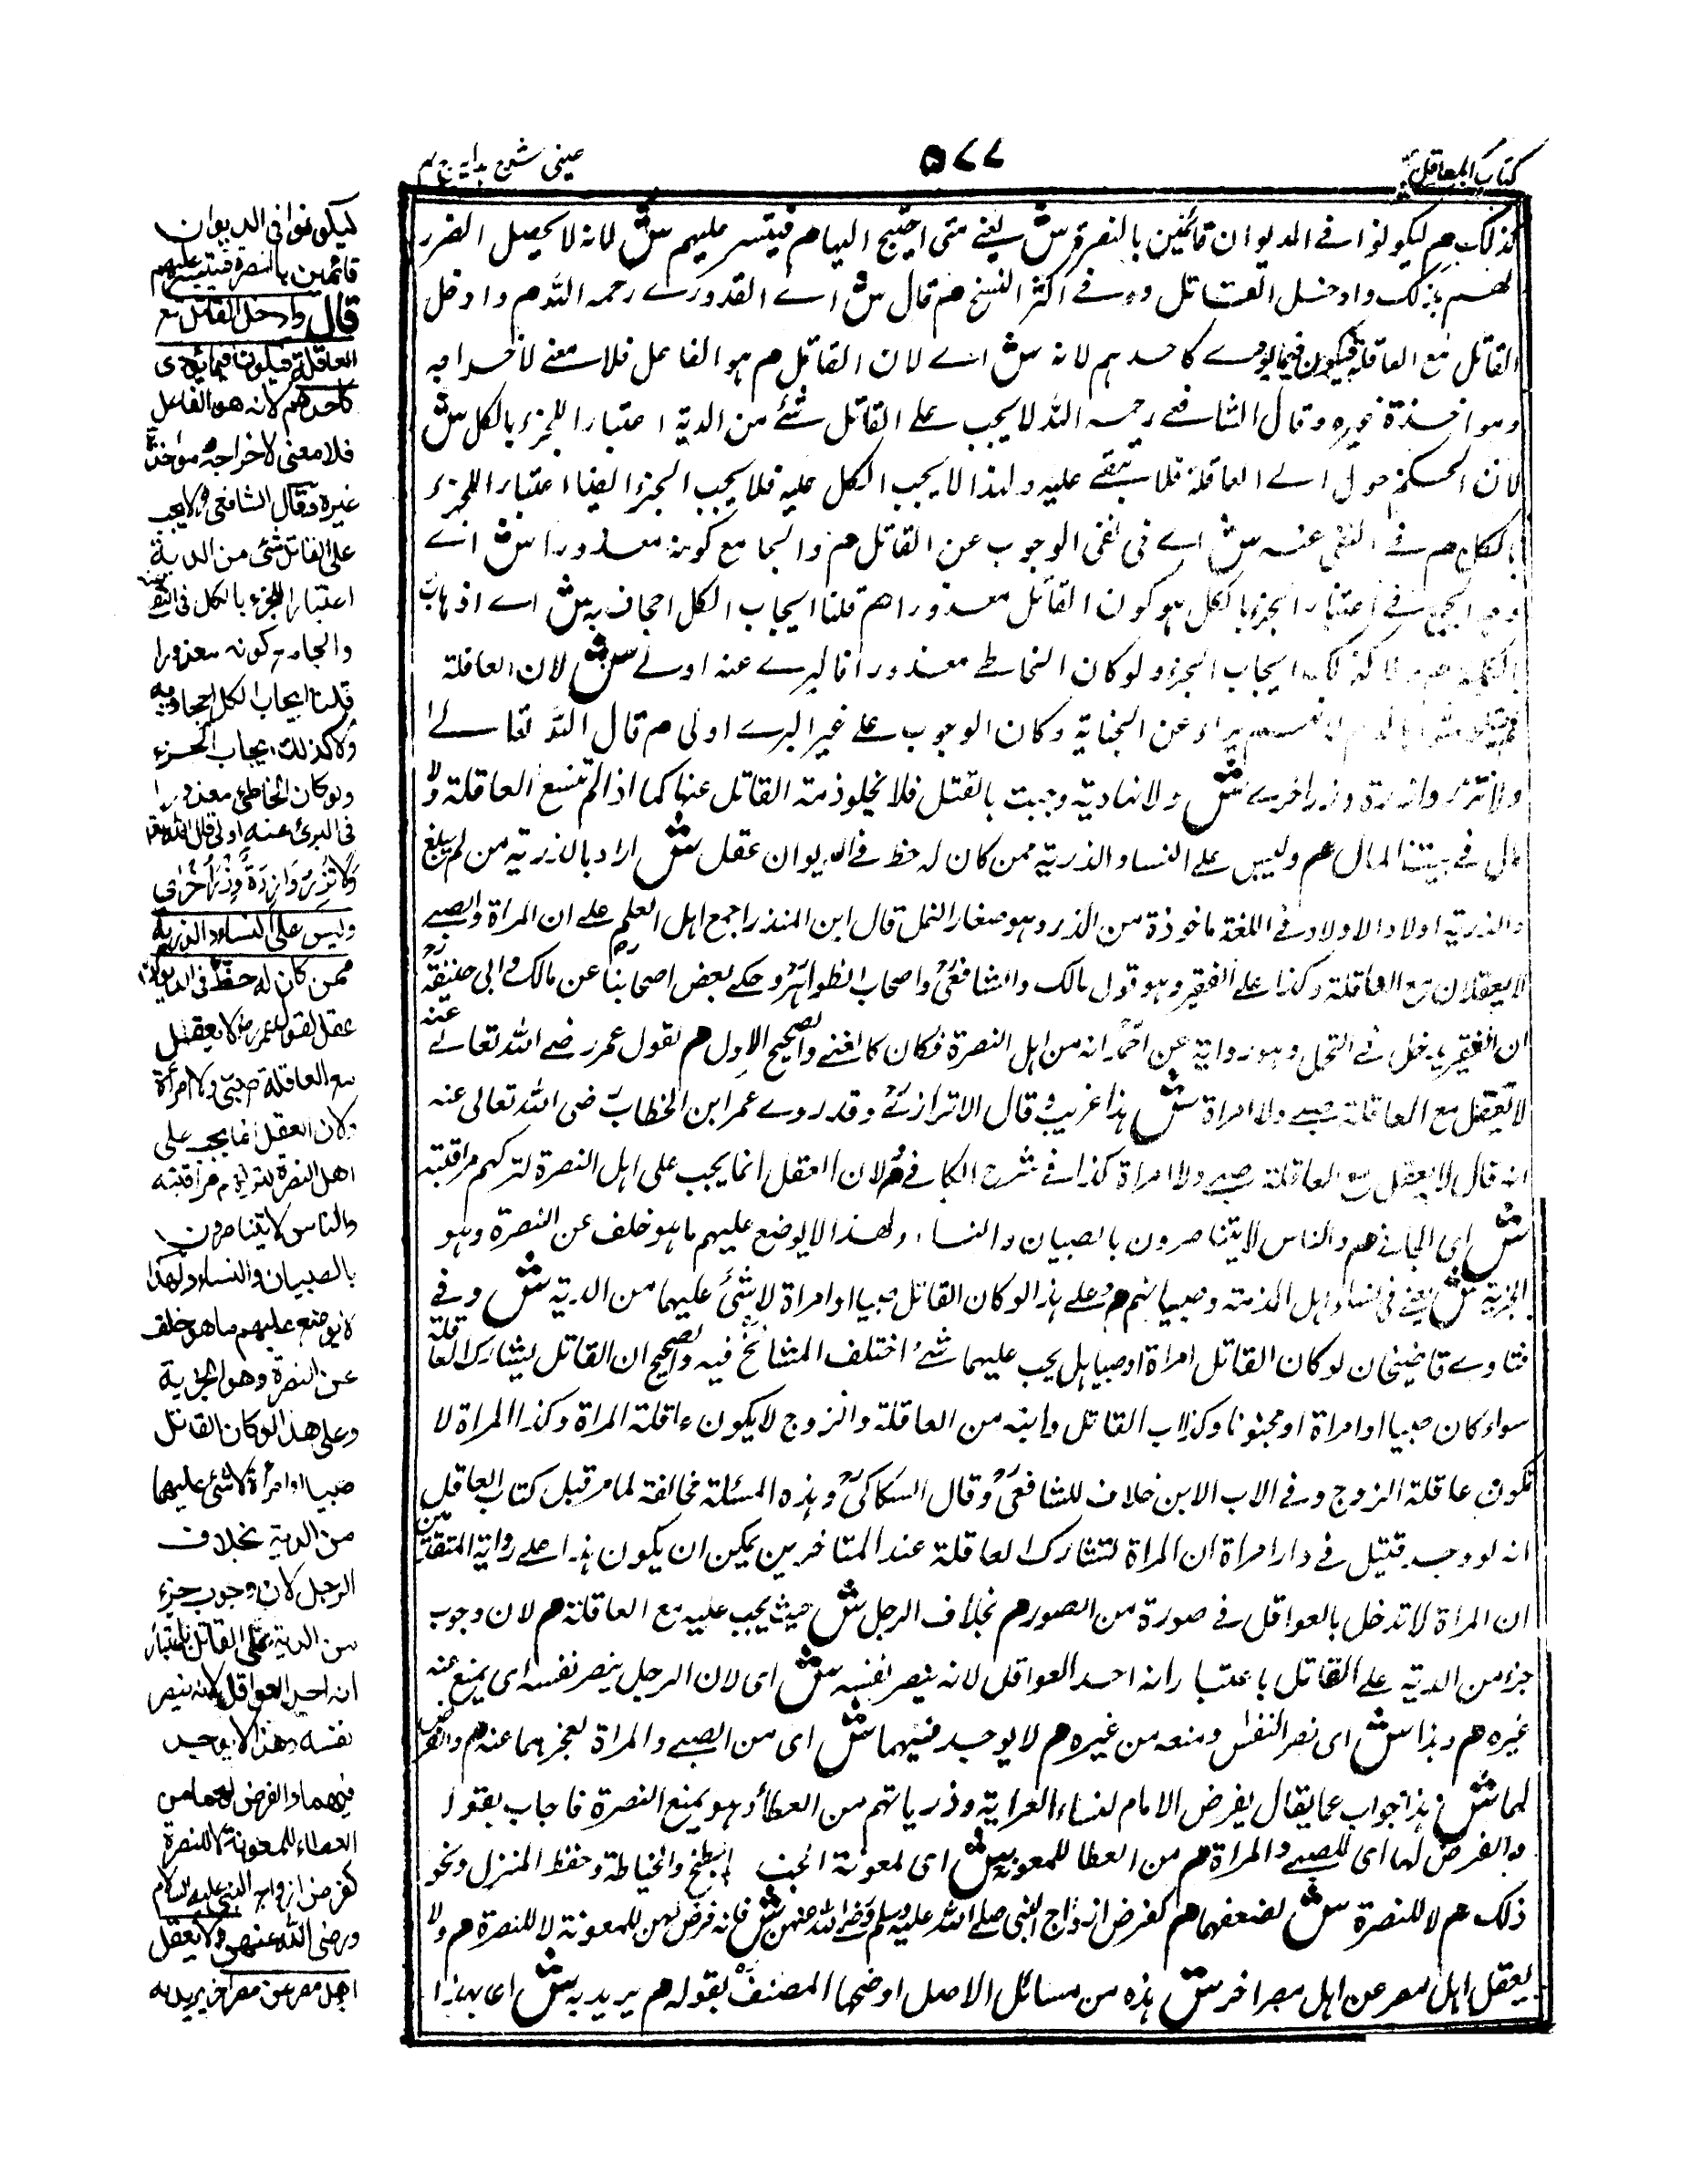 كتاب المعاقل
۵۷۷
عینی شرح ہدایہ ج ۴
كذلك م ليكونوا في الديوان قائمين بالنصرة ش يعني متى احتيج اليها م فيتسر عليهم ش لانه لا يحصل الضرر
لهم بذلك وادخل القاتل في اكثر النسخ م قال ش اى القدورى رحمه الله م وادخل
القاتل مع العاقلة فيكون فيما يودى كاحدهم لانه ش اى لان القاتل م هو الفاعل فلا معنى لاخراجه
ومواخذة غيره وقال الشافعي رحمه الله لا يجب على القاتل شئ من الدية اعتبارا للجزء بالكل ش
لان الحكم حول الى العاقلة فلا يبقى عليه ولهذا لا يجب الكل عليه فلا يجب الجزء ايضا اعتبارا للجزء
بالكل م في النفى عنه ش اى في نفى الوجوب عن القاتل م والجامع كونه معذورا ش اى
وجه الجمع في اعتبار الجزء بالكل هو كون القاتل معذورا م قلنا ايجاب الكل اجحاف به ش اى اذهاب
م ولا كذلك ايجاب الجزء ولو كان الخاطى معذورا فالبرى عنه اولى ش لان العاقلة
براء عن الجناية وكان الوجوب على غير البرى اولى م قال الله تعالى
ولا تزر وازرة وزر اخرى ش ولانها دية وجبت بالقتل فلا يخلو ذمة القاتل عنها كما اذا لم تسع العاقلة ولا
مال في بيت المال م وليس على النساء والذرية ممن كان له حظ في الديوان عقل ش اراد بالذرية من لم يبلغ
والذرية اولاد الاولاد في اللغة ماخوذة من الذر وهو صغار النمل قال ابن المنذر اجمع اهل العلم على ان المراة والصبى
لا يعقلان مع العاقلة وكذا على الفقير وهو قول مالك والشافعي واصحاب الظواهر وحكى بعض اصحابنا عن مالك و ابى حنيفة
ان الفقير يدخل في التحمل وهو رواية عن احمد انه من اهل النصرة فكان كالغنى والصحيح الاول م لقول عمر رضى الله تعالى عنه
لا تعقل مع العاقلة صبى ولا امراة ش هذا غريب وقال الاترازى وقد روى عمر ابن الخطاب رضى الله تعالى عنه
انه قال لا يعقل مع العاقلة صبى ولا امراة كذا في شرح الكافي م ولان العقل انما يجب على اهل النصرة لتركهم مراقبته
ش اى الجانى م والناس لا يتناصرون بالصبيان والنساء ولهذا لا يوضع عليهم ما هو خلف عن النصرة وهو
الجزية ش يعنى في نساء اهل الذمة وصبيانهم م وعلى هذا لو كان القاتل صبيا او امراة لا شئ عليهما من الدية ش وفي
فتاوى قاضيخان لو كان القاتل امراة او صبيا هل يجب عليهما شئ اختلف المشائخ فيه والصحيح ان القاتل يشارك العاقلة
سواء كان صبيا او امراة او مجنونا وكذا اب القاتل وابنه من العاقلة والزوج لا يكون عاقلة المراة وكذا المراة لا
تكون عاقلة الزوج وفي الاب الابن خلاف للشافعي وقال السكاكى وهذه المسئلة مخالفة لما مر قبل كتاب المعاقل
انه لو وجد قتيل في دار امراة ان المراة لتشارك العاقلة عند المتاخرين يمكن ان يكون هذا على رواية المتقدمين
ان المراة لا تدخل بالعواقل في صورة من الصور م بخلاف الرجل ش حيث يجب عليه مع العاقلة م لان وجوب
جزء من الدية على القاتل باعتبار انه احد العواقل لانه ينصر نفسه ش اى لان الرجل ينصر نفسه اى يمنع عنه
غيره م وهذا ش اى نصر النفس ومنعه من غيره م لا يوجد فيهما ش اى من الصبى والمراة لعجزهما عنه م والفرض
لهما ش هذا جواب عما يقال يفرض الامام لنساء الغزاة وذرياتهم من العطاء وهو يمنع النصرة فاجاب بقوله
والفرض لهما اى للصبى والمراة م من العطا للمعونة ش اى لمعونة الطبخ والخياطة وحفظ المنزل ونحو
ذلك م لا للنصرة ش لضعفهما م كفرض ازواج النبى صلى الله عليه وسلم ورضى الله عنهن ش فانه فرض لهن للمعونة لا للنصرة م ولا
يعقل اهل مصر عن اهل مصر اخر ش هذه من مسائل الاصل اوضحها المصنف بقوله م يريد به ش اى بهذا
ليكونوا في الديوان
قائمين بالنصرة فيتيسر عليهم
قال وادخل القاتل مع
العاقلة فيكون فيما يؤدى
كاحدهم لانه هو الفاعل
فلا معنى لاخراجه ومواخذة
غيره وقال الشافعي رح لا يجب
على القاتل شئ من الدية
اعتبارا للجزء بالكل في النفى عنه
والجامع كونه معذورا
قلنا ايجاب الكل اجحاف به
ولا كذلك ايجاب الجزء
ولو كان الخاطئ معذورا
فالبرئ عنه اولى قال الله تعالى
وَلَا تَزِرُ وَازِرَةٌ وِزْرَ اُخْرٰى
وليس على النساء والذرية
ممن كان له حظ في الديوان
عقل لقول عمر رض لا يعقل
مع العاقلة صبى ولا امرأة
ولان العقل انما يجب على
اهل النصرة لتركهم مراقبته
والناس لا يتناصرون
بالصبيان والنساء ولهذا
لا يوضع عليهم ما هو خلف
عن النصرة وهو الجزية
وعلى هذا لو كان القاتل
صبيا او امرأة لا شئ عليهما
من الدية بخلاف
الرجل لان وجوب جزء
من الدية على القاتل باعتبار
انه احد العواقل لانه ينصر
نفسه وهذا لا يوجد
فيهما والفرض لهما من
العطاء للمعونة لا للنصرة
كفرض ازواج النبى عليه السلام
ورضى الله عنهن ولا يعقل
اهل مصر عن مصر اخر يريد به